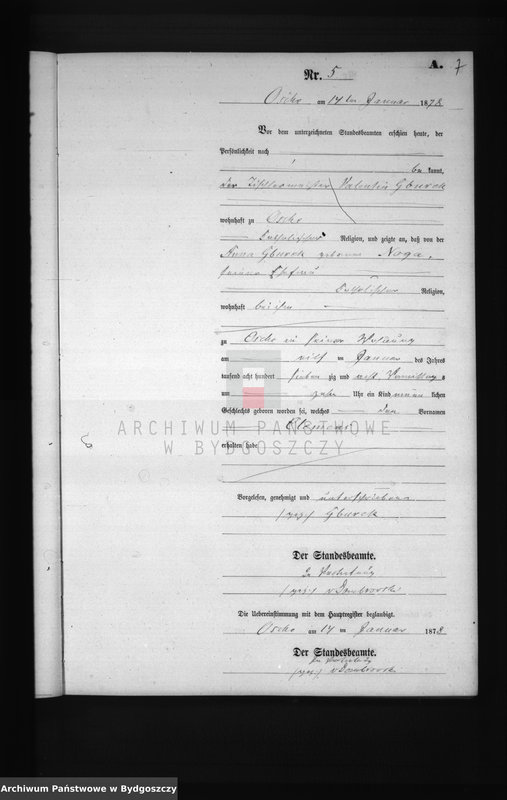 A. 7
Nr. 5
Osche am 14ten Januar 1878
Vor dem unterzeichneten Standesbeamten erschien heute, der
Persönlichkeit nach
be kannt,
der Tischlermeister Valentin Gburek
wohnhaft zu Osche
katholischer Religion, und zeigte an, daß von der
Anna Gburek geborene Noga,
seiner Ehefrau
katholischer Religion,
wohnhaft bei ihm
zu Osche in seiner Wohnung
am elf ten Januar des Jahres
tausend acht hundert sieben zig und acht Vormittags
um zehn Uhr ein Kind männ lichen
Geschlechts geboren worden sei, welches den Vornamen
erhalten habe
Vorgelesen, genehmigt und unterschrieben
(gez.) Gburek
Der Standesbeamte.
In Vertretung
(gez.)
Die Uebereinstimmung mit dem Hauptregister beglaubigt.
Osche am 14 ten Januar 1878
Der Standesbeamte.
In Vertretung
(gez.)
ARCHIWUM PAŃSTWOWE
W BYDGOSZCZY
Archiwum Państwowe w Bydgoszczy